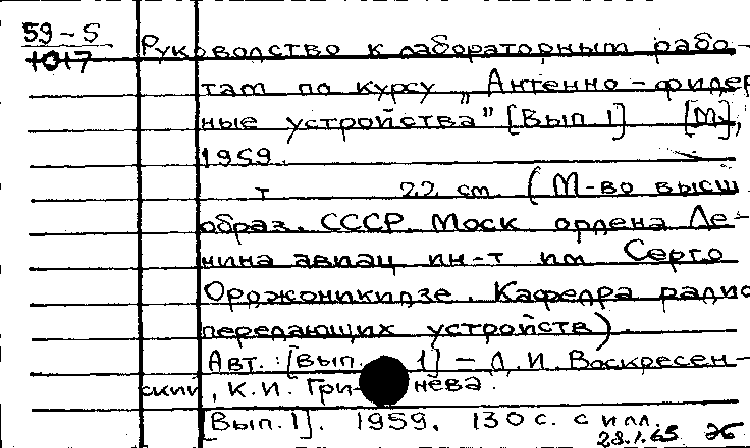 59-5
1017
Руководство к лабораторным рабо-
там по курсу „Антенно-фидер
ные устройства" [Вып. 1] [М],
1959.
т 22 см (М-во высш
образ. СССР. Моск ордена Ле-
нина авиац ин-т им Серго
Орджоникидзе. Кафедра радио
передающих устройств).
Авт.: [Вып. 1] – Д. И. Воскресен-
ский, К. И. Гри- нёва.
[Вып. 1]. 1959. 130 с. с илл.
28.1.65